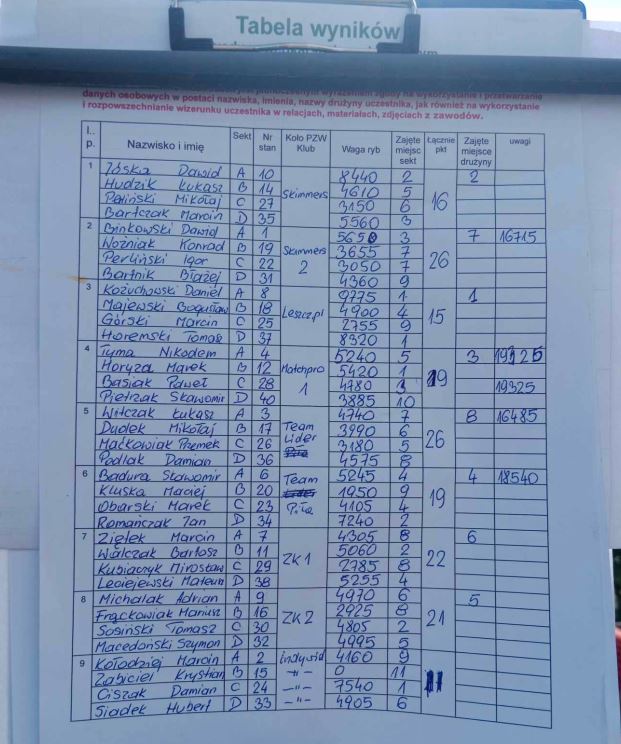 Tabela wyników
danych osobowych w postaci nazwiska, imienia, nazwy drużyny uczestnika, jak również na wykorzystanie
i rozpowszechnianie wizerunku uczestnika w relacjach, materiałach, zdjęciach z zawodów.
L. p. Nazwisko i imię Sekt Nr stan Koło PZW Klub Waga ryb Zajęte miejsc sekt Łącznie pkt Zajęte miejsce drużyny uwagi
1 Dawid A 10 Skimmers 8440 2 16 2
Hudzik Łukasz B 14 4610 5
Paliński Mikołaj C 27 3150 6
Bartczak Marcin D 35 5560 3
2 Binkowski Dawid A 1 Skimmers 2 5650 3 26 7 16715
Woźniak Konrad B 19 3655 7
Perliński Igor C 22 3050 7
Bartnik Błażej D 31 4360 9
3 Kożuchowski Daniel A 8 Leszcz.pl 9775 1 15 1
Majewski Bogusław B 18 4900 4
Górski Marcin C 25 2755 9
Horemski Tomasz D 37 8320 1
4 Tyma Nikodem A 4 Matchpro 1 5240 5 19 3 19325
Horyza Marek B 12 5420 1
Basiak Paweł C 28 4780 3 19325
Pietrzak Sławomir D 40 3885 10
5 Witczak Łukasz A 3 Team Lider 4740 7 26 8 16485
Dudek Mikołaj B 17 3990 6
Maćkowiak Przemek C 26 3180 5
Podlak Damian D 36 4575 8
6 Badura Sławomir A 6 Team Piła 5245 4 19 4 18540
Kluska Maciej B 20 1950 9
Obarski Marek C 23 4105 4
Romańczak Jan D 34 7240 2
7 Ziętek Marcin A 7 ZK 1 4305 8 22 6
Walczak Bartosz B 11 5060 2
Kubiaczyk Mirosław C 29 2785 8
Leciejewski Mateusz D 38 5255 4
8 Michalak Adrian A 9 ZK 2 4970 6 21 5
Frąckowiak Mariusz B 16 2925 8
Sosiński Tomasz C 30 4805 2
Macedoński Szymon D 32 4995 5
9 Kołodziej Marcin A 2 indywid 4160 9
Zabiciel Krystian B 15 -"- 0 11
Ciszak Damian C 24 -"- 7540 1
Siadek Hubert D 33 -"- 4905 6